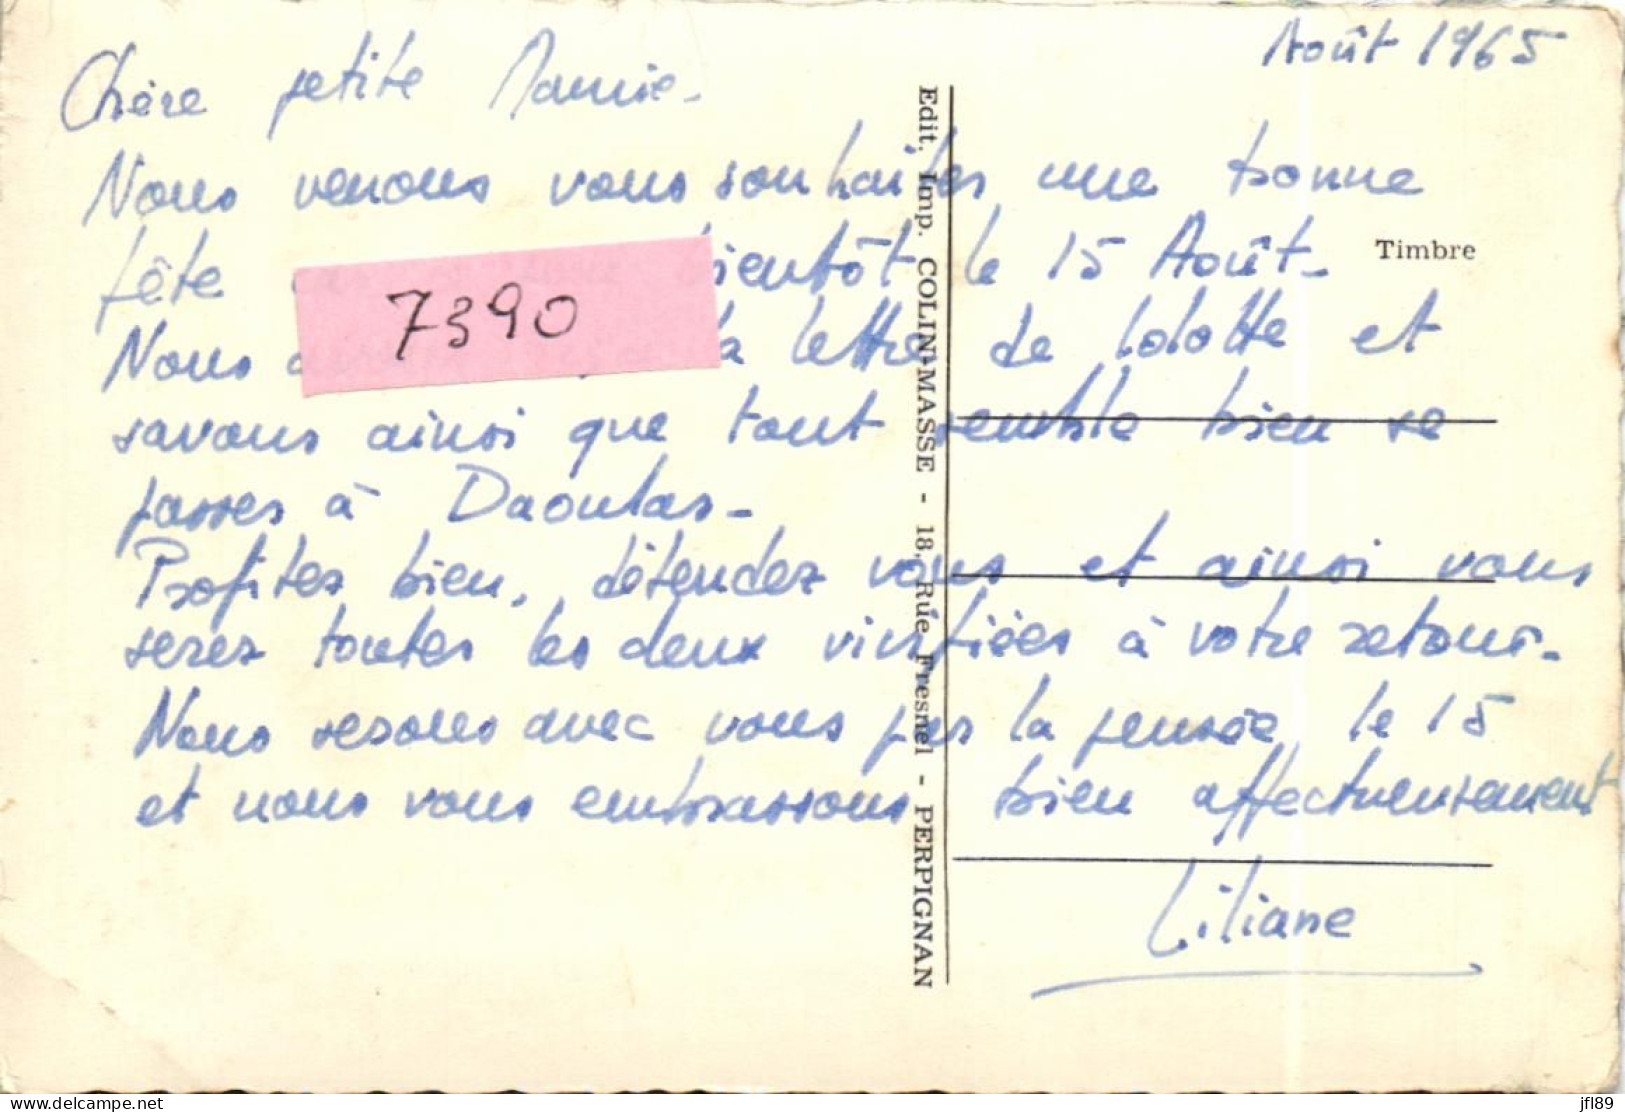 Août 1965
Chère petite Mamie.
Nous venons vous souhaiter une bonne
fête bientôt le 15 Août.
Nous la lettre de lolotte et
savons ainsi que tout semble bien se
passer à Daoulas.
Profitez bien, détendez vous et ainsi vous
serez toutes les deux à votre retour.
Nous serons avec vous par la pensée le 15
et nous vous embrassons bien affectueusement
Liliane
7390
Timbre
Edit. Imp. COLIN-MASSE - 18, Rue Fresnel - PERPIGNAN
jfl89